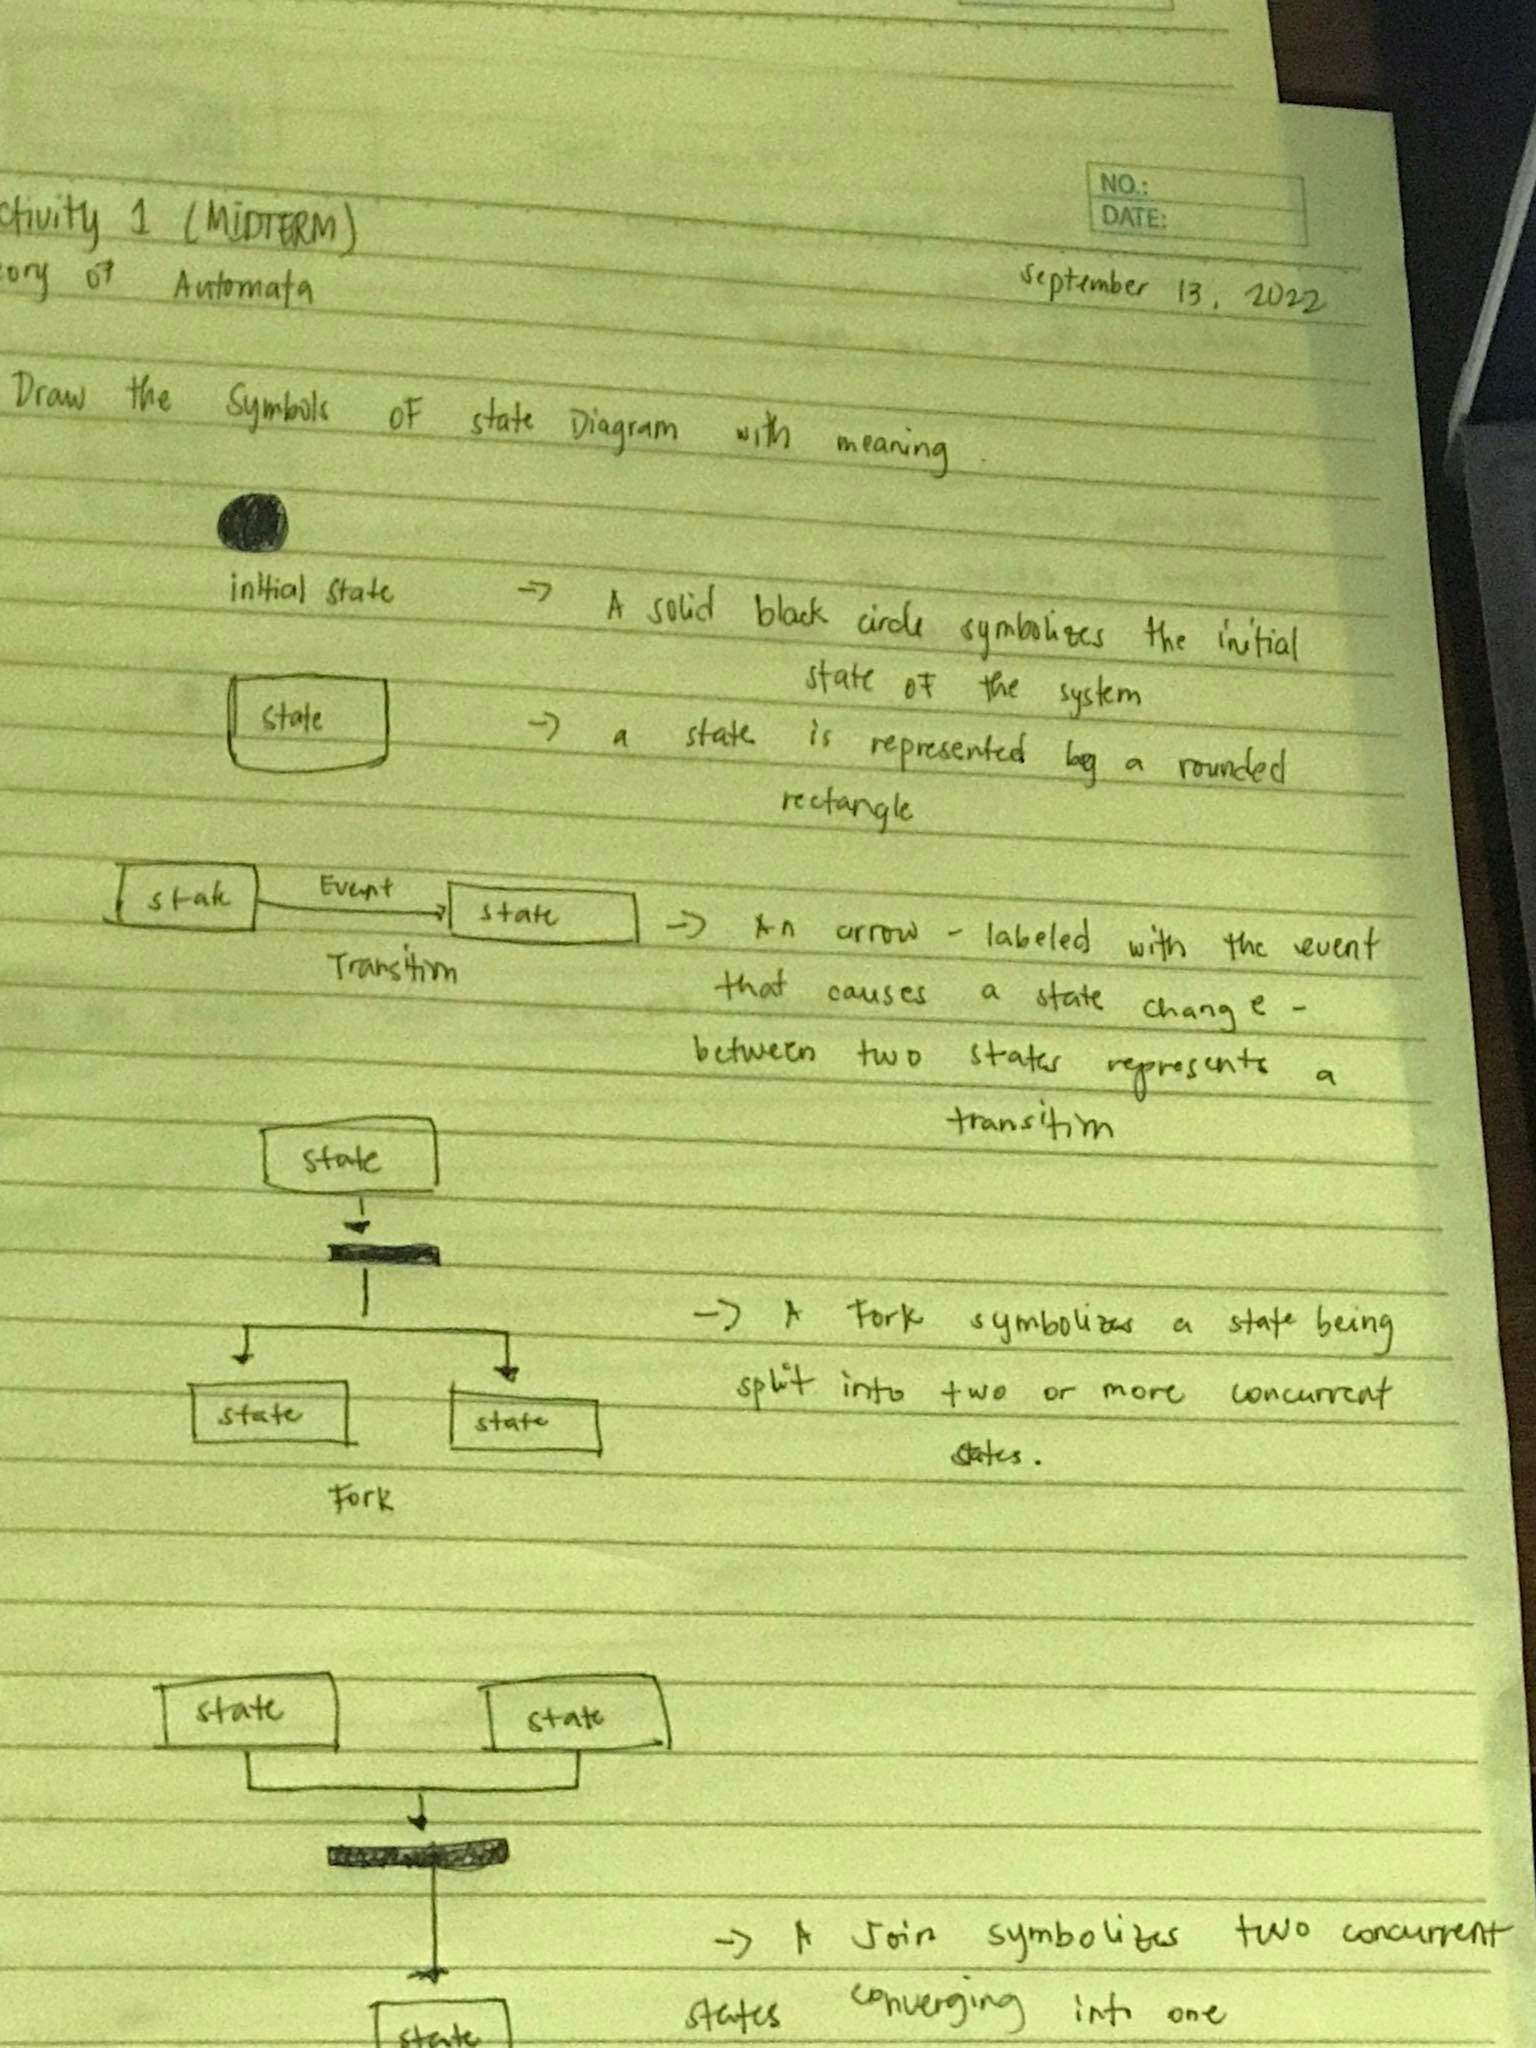 NO.:
DATE:
ctivity 1 (MIDTERM)
eory of Automata
September 13, 2022
Draw the Symbols OF state Diagram with meaning.
initial state -> A solid black circle symbolizes the initial
state OF the system
state -> a state is represented by a rounded
rectangle
state Event state -> An arrow - labeled with the event
Transition
that causes a state change -
between two states represents a
transition
state
-> A Fork symbolizes a state being
split into two or more concurrent
states.
state state
Fork
state state
-> A Join symbolizes two concurrent
states converging into one
state